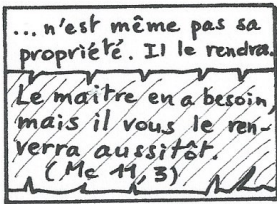 ... n'est même pas sa
propriété. Il le rendra
Le maître en a besoin,
mais il vous le ren-
verra aussitôt.
(Mc 11, 3)